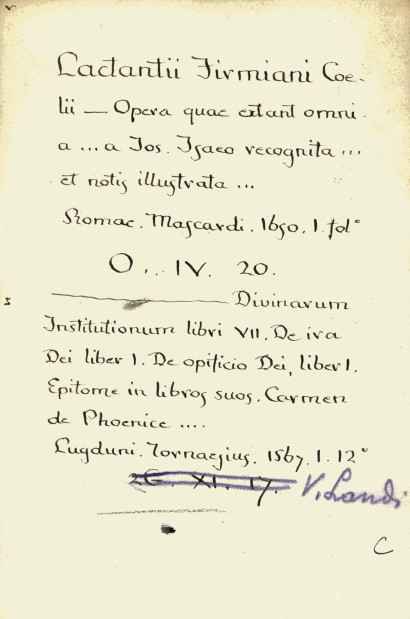 Lactantii Firmiani Coe-
lii — Opera quae extant omni-
a ... a Jos. Isaeo recognita ...
et notis illustrata ...
Romae. Mascardi. 1650. 1. fol°
O... IV. 20.
Divinarum
Institutionum libri VII. De ira
Dei liber 1. De opificio Dei, liber 1.
Epitome in libros suos. Carmen
de Phoenice ....
Lugduni. Tornaesius. 1567. 1. 12°
26. XI. 17. V. Landi
C